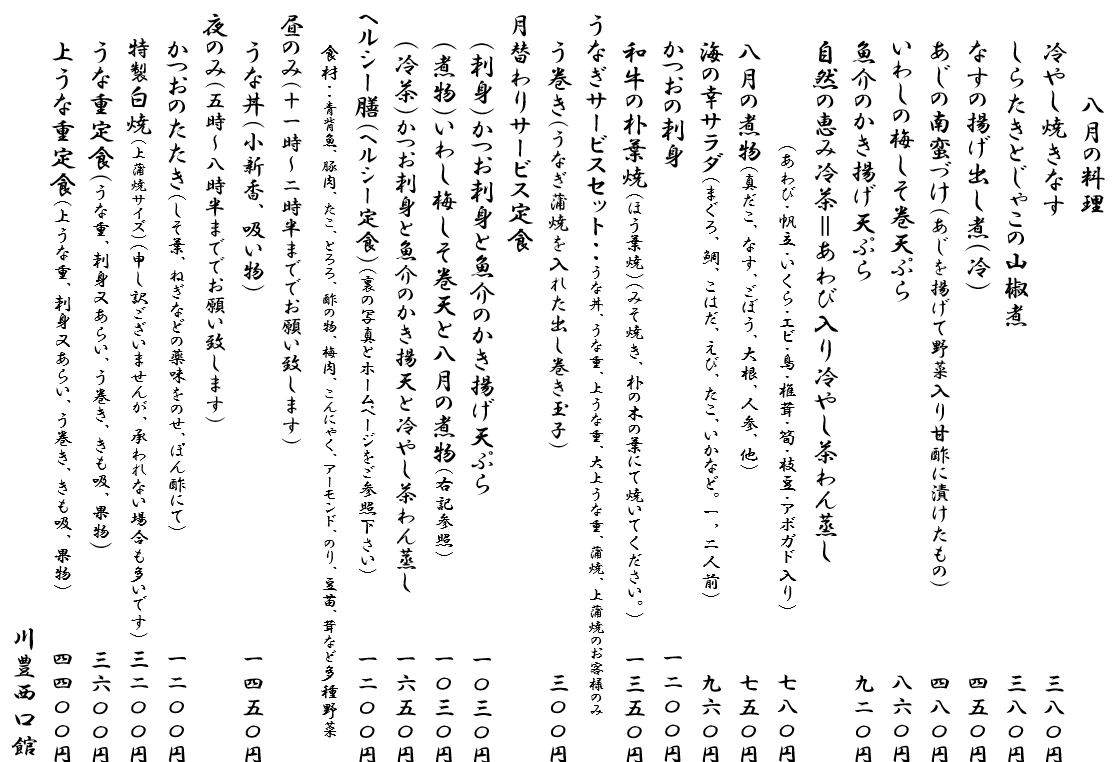 八月の料理
冷やし焼きなす 三八〇円
しらたきとじゃこの山椒煮 三八〇円
なすの揚げ出し煮(冷) 四五〇円
あじの南蛮づけ(あじを揚げて野菜入り甘酢に漬けたもの) 四八〇円
いわしの梅しそ巻天ぷら 八六〇円
魚介のかき揚げ天ぷら 九二〇円
自然の恵み冷茶＝あわび入り冷やし茶わん蒸し
(あわび・帆立・いくら・エビ・鳥・椎茸・筍・枝豆・アボガド入り) 七八〇円
八月の煮物(真だこ、なす、ごぼう、大根、人参、他) 七五〇円
海の幸サラダ(まぐろ、鯛、こはだ、えび、たこ、いかなど。一、二人前) 九六〇円
かつおの刺身 一二〇〇円
和牛の朴葉焼(ほう葉焼)(みそ焼き、朴の木の葉にて焼いてください。) 一三五〇円
うなぎサービスセット・・うな丼、うな重、上うな重、大上うな重、蒲焼、上蒲焼のお客様のみ
う巻き(うなぎ蒲焼を入れた出し巻き玉子) 三〇〇円
月替わりサービス定食
(刺身)かつお刺身と魚介のかき揚げ天ぷら 一〇三〇円
(煮物)いわし梅しそ巻天と八月の煮物(右記参照) 一〇三〇円
(冷茶)かつお刺身と魚介のかき揚天と冷やし茶わん蒸し 一六五〇円
ヘルシー膳(ヘルシー定食)(裏の写真とホームページをご参照下さい) 一二〇〇円
食材・・青背魚、豚肉、たこ、とろろ、酢の物、梅肉、こんにゃく、アーモンド、のり、豆苗、茸など多種野菜
昼のみ(十一時～二時半まででお願い致します)
うな丼(小新香、吸い物) 一四五〇円
夜のみ(五時～八時半まででお願い致します)
かつおのたたき(しそ葉、ねぎなどの薬味をのせ、ぽん酢にて) 一二〇〇円
特製白焼(上蒲焼サイズ)(申し訳ございませんが、承われない場合も多いです) 三二〇〇円
うな重定食(うな重、刺身又あらい、う巻き、きも吸、果物) 三六〇〇円
上うな重定食(上うな重、刺身又あらい、う巻き、きも吸、果物) 四四〇〇円
川豊西口館